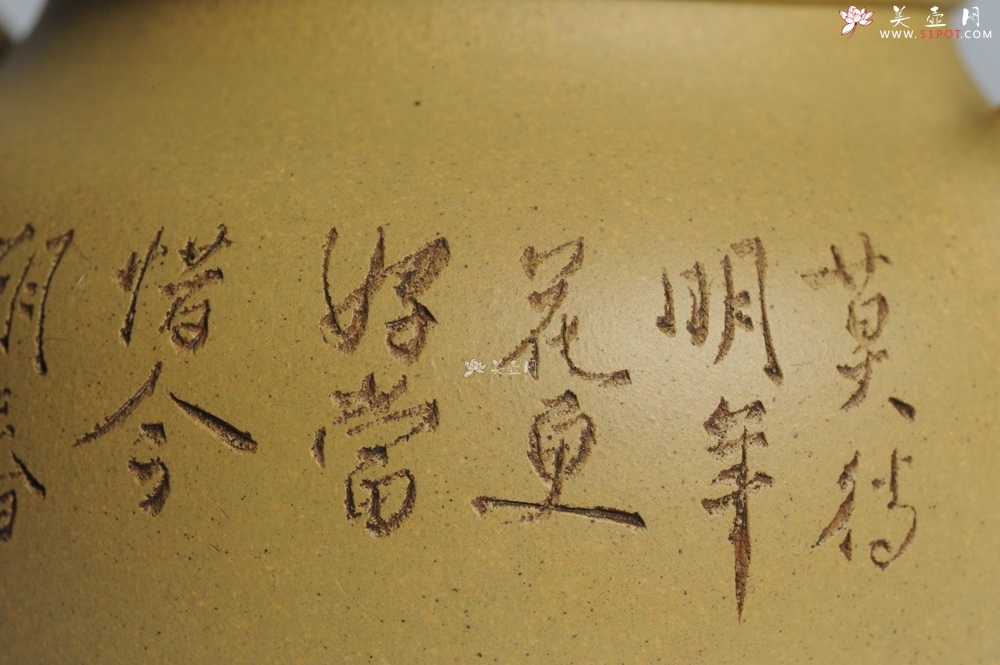 莫待
明年
花更
好當
惜今
朝
美壶网
WWW.51POT.COM
美壶网